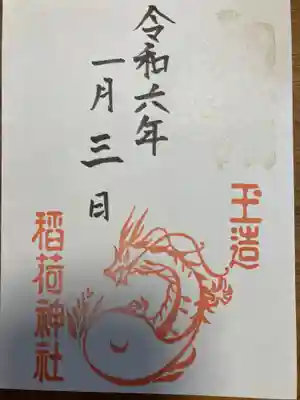 令和六年
一月三日
玉造
稲荷神社